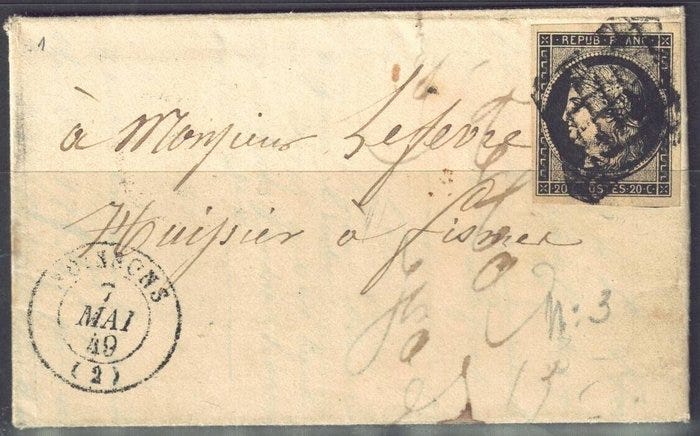 1
REPUB. FRANC.
20 C. POSTES. 20 C.
à Monsieur Lefevre
Huissier à fismes
SOISSONS
7
MAI
49
(2)
n: 3